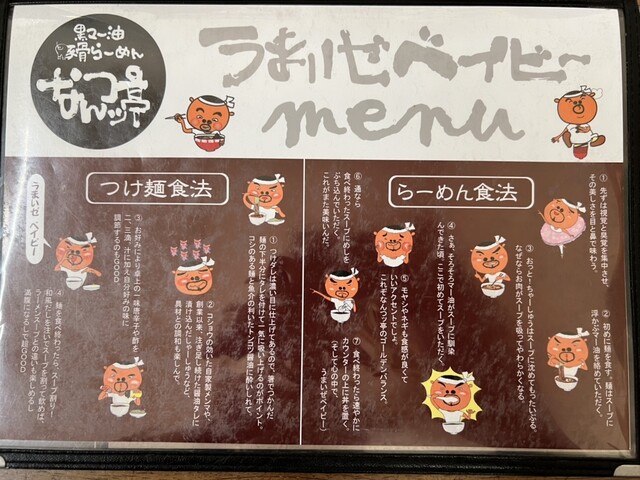 黒マー油
豚骨らーめん
なんつッ亭
うまいぜベイビー
menu
らーめん食法
① 先ずは視覚と臭覚を集中させ、
その美しさを目と鼻で味わう。
② 初めに麺を食す。麺はスープに
浮かぶマー油を絡めていただく。
③ おっとー!ちゃーしゅうはスープに沈めてもったいぶる。
なぜならお肉がスープを吸ってやわらかくなる。
④ さぁ、そろそろマー油がスープに馴染
んできた頃、ここで初めてスープをいただく。
⑤ モヤシやネギも食感が良くて
いいアクセントでしょ。
これぞなんつッ亭のゴールデンバランス。
⑥ 通なら
食べ終わったスープにめしを
ぶち込んでいただく。
これがまた美味いんだ。
⑦ 食べ終わったら速やかに
カウンターの上に丼を置く。
(そして心の中で、
うまいぜベイビー)
つけ麺食法
① つけダレは濃い目に仕上げてあるので、箸でつかんだ
麺の下半分にタレを付けて一気に吸い上げるのがポイント。
コシのある麺と魚介の利いたトンコツ醤油に酔いしれて。
② コショウの効いた自家製メンマや、
創業以来、注ぎ足し続けた醤油タレに
漬け込んだしゃーしゅうなど、
具材との調和も楽しんで。
③ お好みにより卓上の一味唐辛子や酢を
二、三滴、汁に加え自分好みの味に
調節するのもGOOD。
④ 麺を食べ終わったら、スープ割り!
和風だしを注いでスープを割って飲めば、
ラーメンスープとの違いも楽しめるし
満腹になるし超GOOD。
うまいぜ ベイビー